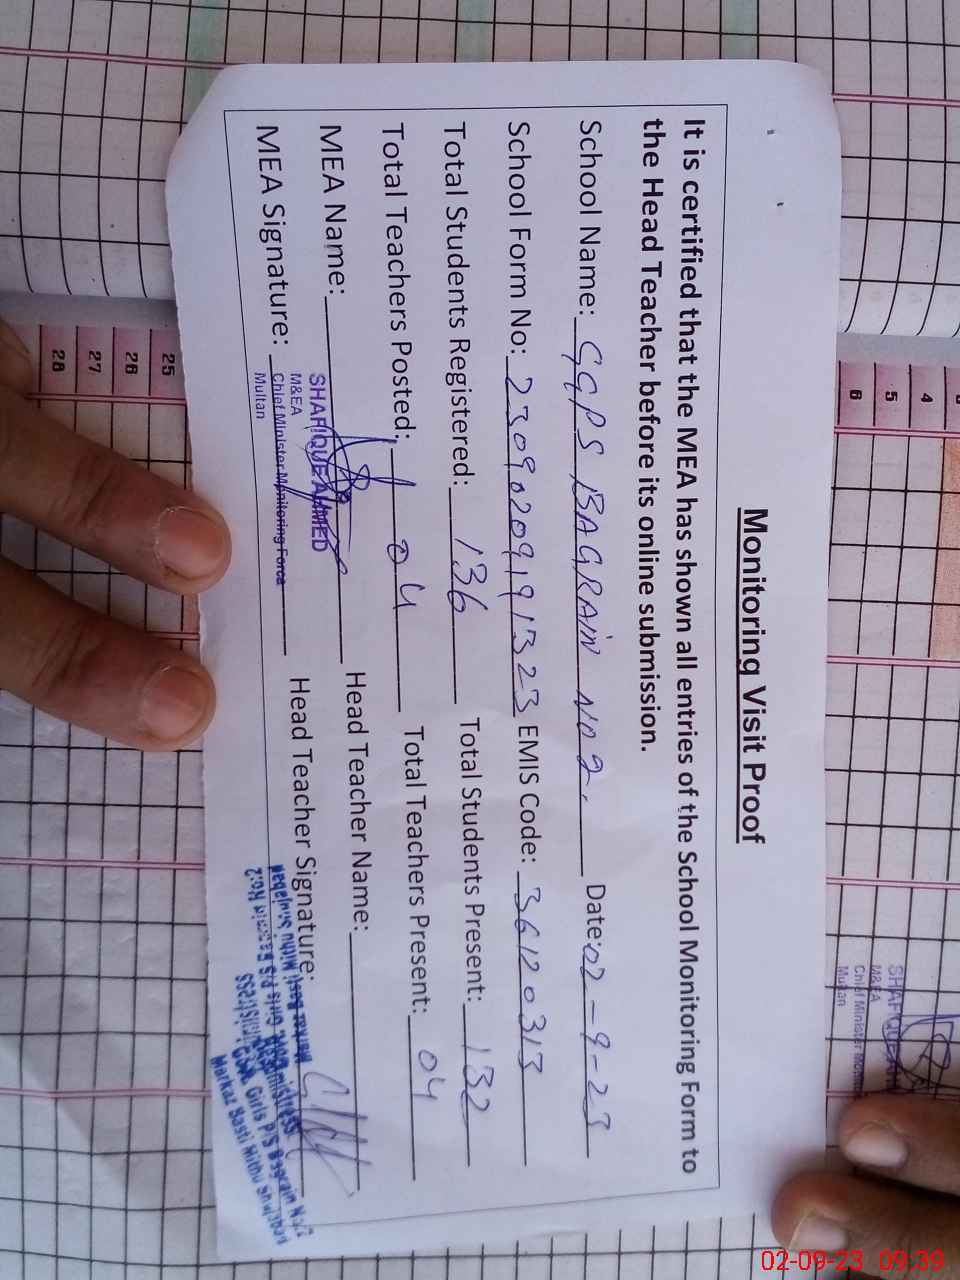 Monitoring Visit Proof
It is certified that the MEA has shown all entries of the School Monitoring Form to
the Head Teacher before its online submission.
School Name: GGPS BAGRAIN NO 2. Date: 02-9-23
School Form No: 23090209191323 EMIS Code: 36120313
Total Students Registered: 136 Total Students Present: 132
Total Teachers Posted: 04 Total Teachers Present: 04
MEA Name: Head Teacher Name:
SHAFIQUE AHMED
M&EA
MEA Signature: Chief Minister Monitoring Force Head Teacher Signature:
Multan
Headmistress
Govt. Girls P/S Bagrain No.2
Markaz Basti Mithu Shujabad
SHAFIQUE AH
M&EA
Chief Minister Monito
Multan
4
5
6
25
26
27
28
02-09-23 09:39